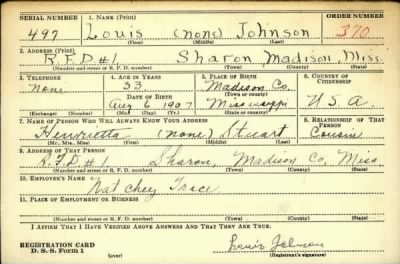 SERIAL NUMBER 1. NAME (Print) ORDER NUMBER
497 Louis (none) Johnson 370
(First) (Middle) (Last)
2. ADDRESS (Print)
R.F.D #1 Sharon, Madison, Miss.
(Number and street or R. F. D. number) (Town) (County) (State)
3. TELEPHONE 4. AGE IN YEARS 5. PLACE OF BIRTH 6. COUNTRY OF CITIZENSHIP
None 33 Madison Co.
DATE OF BIRTH (Town or county)
Aug 6 1907 Mississippi U.S.A.
(Exchange) (Number) (Mo.) (Day) (Yr.) (State or country)
7. NAME OF PERSON WHO WILL ALWAYS KNOW YOUR ADDRESS 8. RELATIONSHIP OF THAT PERSON
Henrietta (none) Stuart Cousin
(Mr., Mrs., Miss) (First) (Middle) (Last)
9. ADDRESS OF THAT PERSON
R.F.D #1 Sharon, Madison Co, Miss
(Number and street or R. F. D. number) (Town) (County) (State)
10. EMPLOYER'S NAME
Nat chey Trace
11. PLACE OF EMPLOYMENT OR BUSINESS
(Number and street or R. F. D. number) (Town) (County) (State)
I AFFIRM THAT I HAVE VERIFIED ABOVE ANSWERS AND THAT THEY ARE TRUE.
REGISTRATION CARD
D. S. S. Form 1 (over) Louis Johnson
(Registrant's signature)